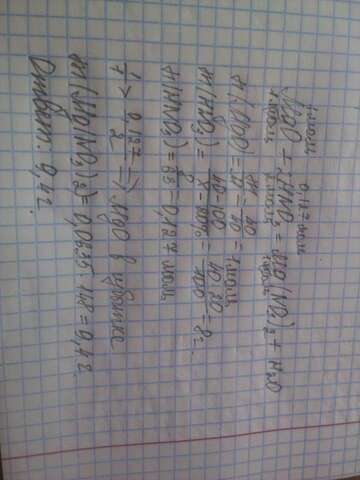 1 моль 0,127 моль
MgO + 2HNO₃ = Mg(NO₃)₂ + H₂O
1 моль 2 моль 1 моль
n(MgO) = m/M = 40/40 = 1 моль
m(HNO₃) = = 40·20/100 = 8г
n(HNO₃) = 8/63 = 0,127 моль
1/1 > 0,127/2 => MgO в избытке
m(Mg(NO₃)₂) = 0,0635·148 = 9,4г
Ответ: 9,4г.